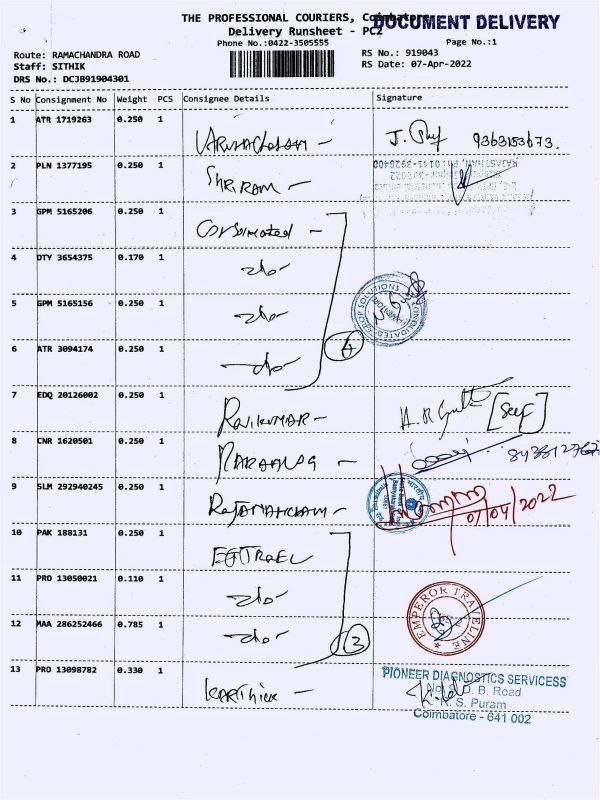 THE PROFESSIONAL COURIERS, Coimbatore
DOCUMENT DELIVERY
Delivery Runsheet - PC2
Phone No.:0422-3505555
Page No.:1
Route: RAMACHANDRA ROAD
RS No.: 919043
Staff: SITHIK
RS Date: 07-Apr-2022
DRS No.: DCJB91904301
S No Consignment No Weight PCS Consignee Details Signature
1 ATR 1719263 0.250 1
9363153673.
2 PLN 1377195 0.250 1 SHRIRAM –
RAJASTHAN, PH: 0141-3926400
3 GPM 5165206 0.250 1
4 DTY 3654375 0.170 1 -do-
5 GPM 5165156 0.250 1 -do-
4
6 ATR 3094174 0.250 1 -do-
7 EDQ 20126002 0.250 1 RAVIKUMAR –
[Self]
8 CNR 1620501 0.250 1
9 SLM 292940245 0.250 1
07/04/2022
10 PAK 188131 0.250 1
11 PRO 13050021 0.110 1 -do-
EMPEROR TRAVELINE
12 MAA 286252466 0.785 1 -do-
3
13 PRO 13098782 0.330 1 Karthick –
PIONEER DIAGNOSTICS SERVICESS
D. B. Road
R. S. Puram
Coimbatore - 641 002